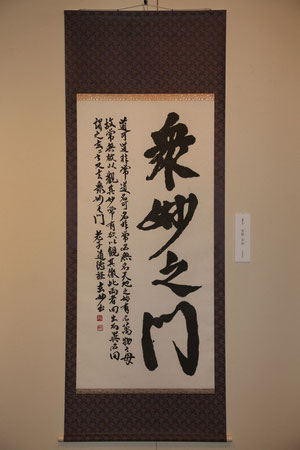 衆妙之門
道可道非常道名可名非常名無名天地之始有名萬物之母
故常無欲以觀其妙常有欲以觀其徼此兩者同出而異名同
謂之玄玄之又玄衆妙之門 老子道德經